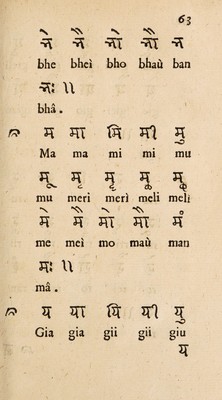 63
भे भै भो भौ भं
bhe bheì bho bhaù ban
भः ॥
bhâ.
म मा मि मी मु
Ma ma mi mi mu
मू मृ मॄ मॢ मॣ
mu meri merì meli melì
मे मै मो मौ मं
me meì mo maù man
मः ॥
mâ.
य या यि यी यु
Gia gia gii gii giu
य